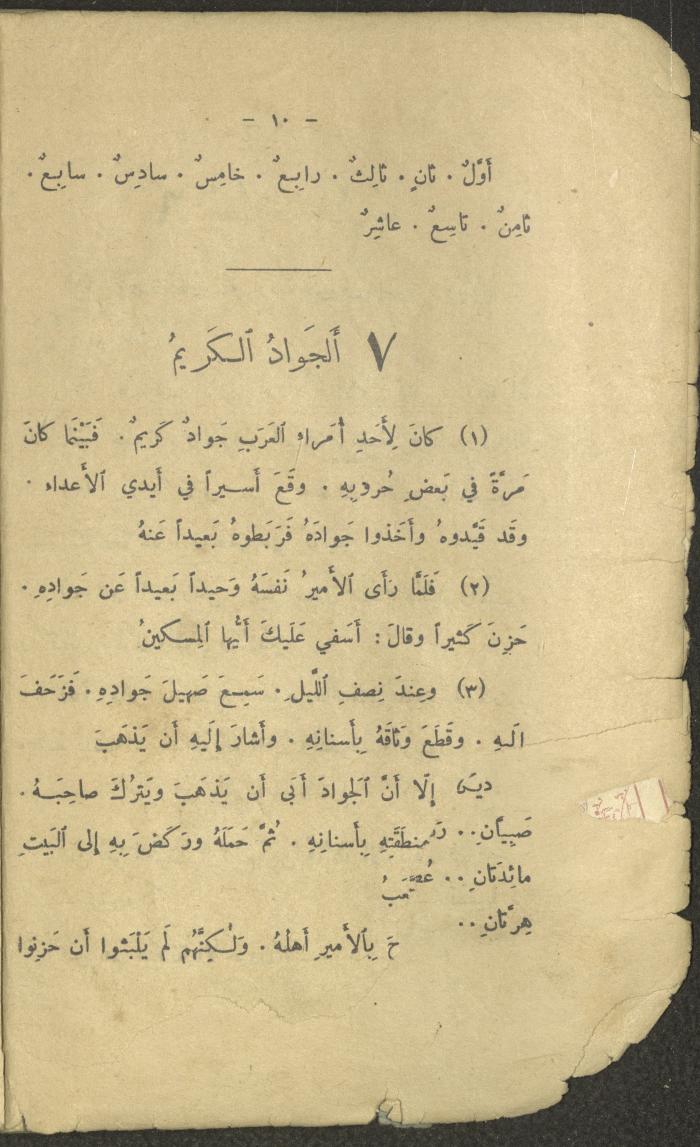 - ١٠ -
أَوَّلٌ . ثانٍ . ثالِثٌ . رابِعٌ . خامِسٌ . سادِسٌ . سابِعٌ .
ثامِنٌ . تاسِعٌ . عاشِرٌ
٧ أَلجَوادُ الكَريمُ
(١) كانَ لِأَحَدِ أُمَراءِ العَرَبِ جَوادٌ كَريمٌ . فَبَيْنَما كانَ
مَرَّةً في بَعضِ حُروبِهِ . وقَعَ أَسيراً في أَيدي الأَعداء .
وقَد قَيَّدوهُ وأَخَذوا جَوادَهُ فَرَبَطوهُ بَعيداً عَنهُ
(٢) فَلَمَّا رَأَى الأَميرُ نَفسَهُ وَحيداً بَعيداً عَن جَوادِهِ .
حَزِنَ كَثيراً وقالَ : أَسَفي عَلَيكَ أَيُّها المِسكينُ
(٣) وعِندَ نِصفِ اللَّيلِ . سَمِعَ صَهيلَ جَوادِهِ . فَزَحَفَ
الَيهِ . وقَطَعَ وَثاقَهُ بِأَسنانِهِ . وأَشارَ إِلَيهِ أَن يَذهَبَ
إِلّا أَنَّ الجَوادَ أَبَى أَن يَذهَبَ ويَترُكَ صاحِبَهُ .
صَبِيّانِ .. مِنطَقَتِهِ بِأَسنانِهِ . ثُمَّ حَمَلَهُ ورَكَضَ بِهِ إِلى البَيتِ
مائِدَتانِ ..
هِرَّتانِ ..
حَ بِالأَميرِ أَهلُهُ . وَلٰكِنَّهُم لَم يَلْبَثوا أَن حَزِنوا